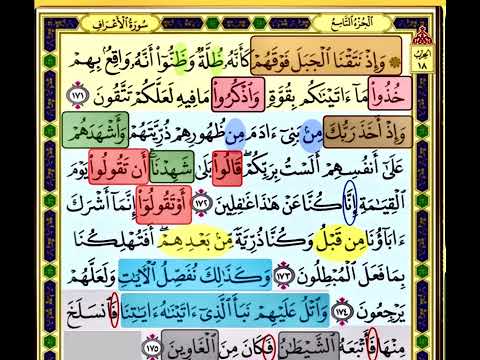 سُورَةُ الأَعْرَافِ الجُزْءُ التَّاسِعُ
الحِزْبُ ١٨
۞ وَإِذْ نَتَقْنَا ٱلْجَبَلَ فَوْقَهُمْ كَأَنَّهُۥ ظُلَّةٌ وَظَنُّوٓا۟ أَنَّهُۥ وَاقِعٌۢ بِهِمْ
خُذُوا۟ مَآ ءَاتَيْنَٰكُم بِقُوَّةٍ وَٱذْكُرُوا۟ مَا فِيهِ لَعَلَّكُمْ تَتَّقُونَ ١٧١
وَإِذْ أَخَذَ رَبُّكَ مِنۢ بَنِىٓ ءَادَمَ مِن ظُهُورِهِمْ ذُرِّيَّتَهُمْ وَأَشْهَدَهُمْ
عَلَىٰٓ أَنفُسِهِمْ أَلَسْتُ بِرَبِّكُمْ قَالُوا۟ بَلَىٰ شَهِدْنَآ أَن تَقُولُوا۟ يَوْمَ
ٱلْقِيَٰمَةِ إِنَّا كُنَّا عَنْ هَٰذَا غَٰفِلِينَ ١٧٢ أَوْ تَقُولُوٓا۟ إِنَّمَآ أَشْرَكَ
ءَابَآؤُنَا مِن قَبْلُ وَكُنَّا ذُرِّيَّةً مِّنۢ بَعْدِهِمْ أَفَتُهْلِكُنَا
بِمَا فَعَلَ ٱلْمُبْطِلُونَ ١٧٣ وَكَذَٰلِكَ نُفَصِّلُ ٱلْءَايَٰتِ وَلَعَلَّهُمْ
يَرْجِعُونَ ١٧٤ وَٱتْلُ عَلَيْهِمْ نَبَأَ ٱلَّذِىٓ ءَاتَيْنَٰهُ ءَايَٰتِنَا فَٱنسَلَخَ
مِنْهَا فَأَتْبَعَهُ ٱلشَّيْطَٰنُ فَكَانَ مِنَ ٱلْغَاوِينَ ١٧٥